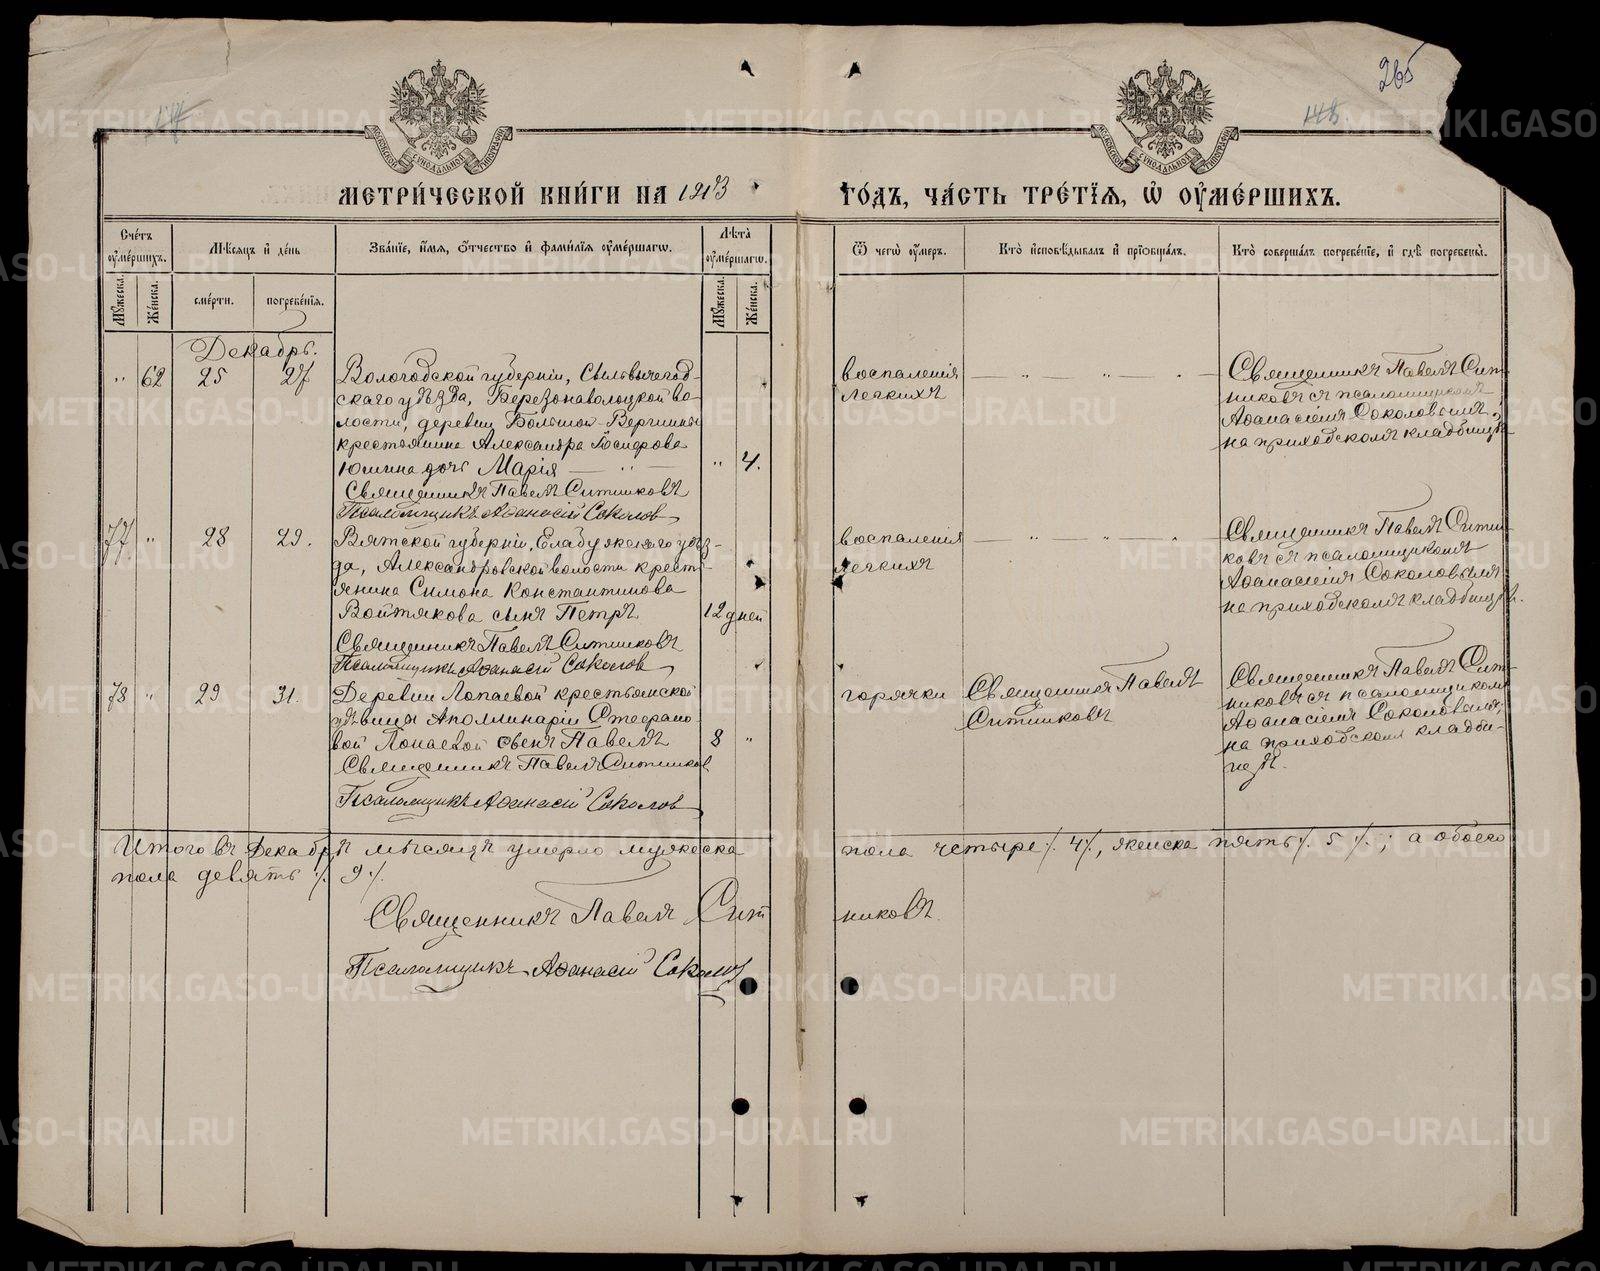 265
METRIKI.GASO-URAL.RU
МОСКОВСКОЙ СѴНОДАЛЬНОЙ ТИПОГРАФІИ
МЕТРИ́ЧЕСКОЙ КНИ́ГИ НА 1913 ГО́ДЪ, ЧА́СТЬ ТРЕ́ТІЯ, Ѡ҆ ОУ҆МЕ́РШИХЪ.
Сче́тъ оу҆ме́ршихъ.
Мꙋ́жеска.
Же́нска.
Мѣ́сяцъ и҆ де́нь
сме́рти.
погребе́нія.
Зва́ніе, и҆́мя, ѻ҆́тчество и҆ фами́лія оу҆ме́ршагѡ.
Лѣ́та оу҆ме́ршагѡ.
Мꙋ́жеска.
Же́нска.
Ѿ чегѡ̀ оу҆́меръ.
Кто̀ и҆сповѣ́дывалъ и҆ прїѻбща́лъ.
Кто̀ соверша́лъ погребе́ніе, и҆ гдѣ̀ погребены̀.
Декабрь.
" 62 25 27
Вологодской губерніи, Сольвычегод-
скаго уѣзда, Березонаволоцкой во
лости, деревни Большой
крестьянина Александра Іосифова
Юшина дочь Марія — " —
" 4.
Священникъ Павелъ Ситниковъ
Псаломщикъ Аѳанасій Соколов
воспаленія
легкихъ
— " — " — " —
Священникъ Павелъ Сит-
никовъ съ псаломщикомъ
Аѳанасіемъ Соколовымъ,
на приходскомъ кладбищѣ
77 " 28 29.
Вятской губерніи, Елабужскаго уѣз-
да, Александровской волости крестъ-
янина Симона Константинова
Войтякова сынъ Петръ
12 дней
Священникъ Павелъ Ситниковъ
Псаломщикъ Аѳанасій Соколов
воспаленія
легкихъ
— " — " — " —
Священникъ Павелъ Ситни-
ковъ съ псаломщикомъ
Аѳанасіемъ Соколовымъ
на приходскомъ кладбищѣ.
78 " 29 31.
Деревни Лопаевой крестьянской
дѣвицы Аполлинаріи Стефано
вой Лопаевой сынъ Павелъ
8 "
Священникъ Павелъ Ситников
Псаломщикъ Аѳанасій Соколов
горячки
Священникъ Павелъ
Ситниковъ
Священникъ Павелъ Сит-
никовъ съ псаломщикомъ
Аѳанасіемъ Соколовымъ;
на приходском кладби-
щѣ.
Итого въ Декабрѣ мѣсяцѣ умерло мужеска пола четыре ·/. 4 ·/., женска пять ·/. 5 ·/.; а обоего
пола девять ·/. 9 ·/.
Священникъ Павелъ Ситниковъ.
Псаломщикъ Аѳанасій Соколов